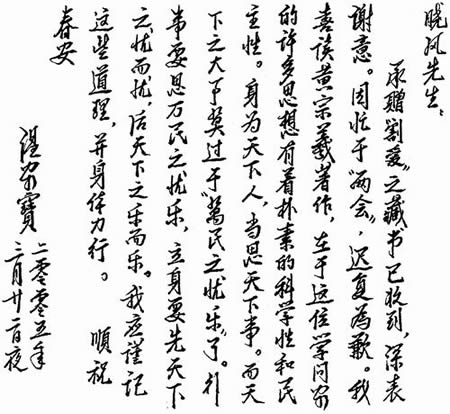 晓风先生：
承赠"割爱"之藏书已收到，深表
谢意。因忙于"两会"，迟复为歉。我
喜读黄宗羲著作，在于这位学问家
的许多思想有着朴素的科学性和民
主性。身为天下人，当思天下事。而天
下之大事莫过于"万民之忧乐"了。行
事要思万民之忧乐，立身要先天下
之忧而忧，后天下之乐而乐。我应谨记
这些道理，并身体力行。 顺祝
春安
温家宝
二零零五年
三月廿一日夜